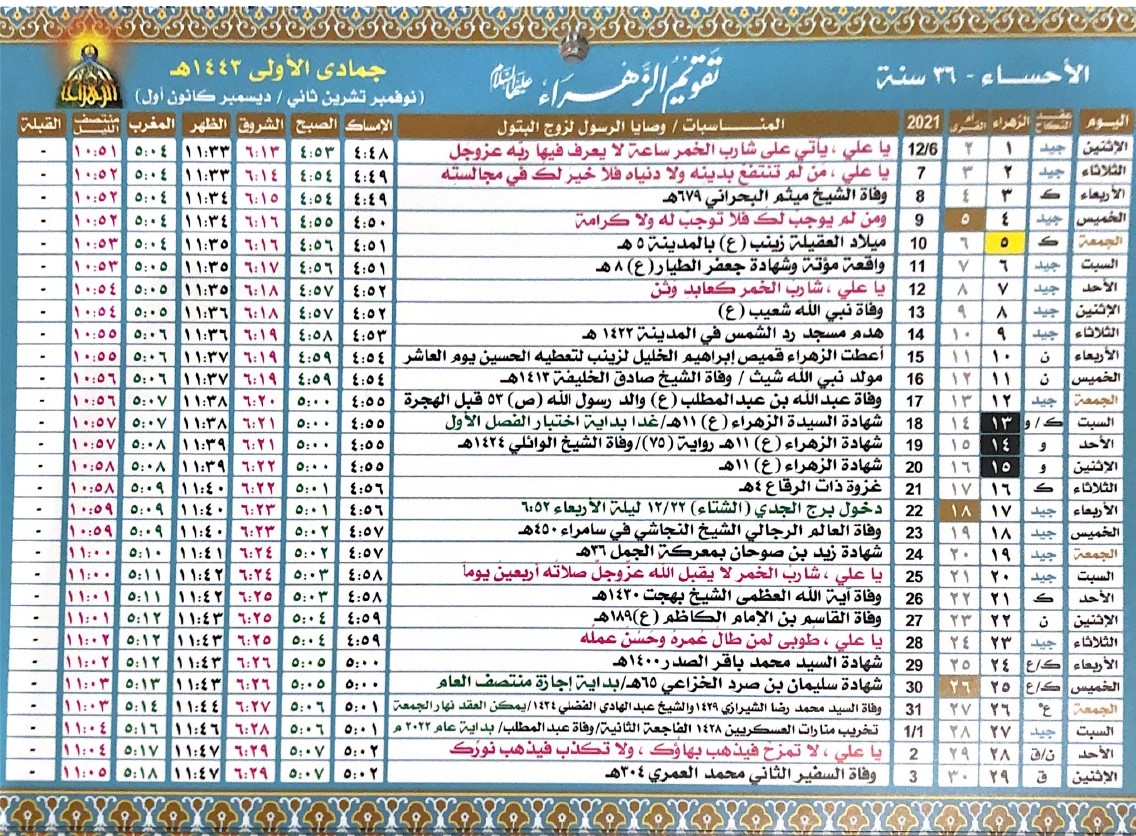 الأحساء - ٣٦ سنة
تقويم الزهراء عليها السلام
جمادى الأولى ١٤٤٣هـ
(نوفمبر تشرين ثاني / ديسمبر كانون أول)
الزهراء
اليوم عقد النكاح الزهراء أم القرى 2021 المناسبات / وصايا الرسول لزوج البتول الإمساك الصبح الشروق الظهر المغرب منتصف الليل القبلة
الإثنين جيد ١ ٢ 12/6 يا علي ، يأتي على شارب الخمر ساعة لا يعرف فيها ربّه عزوجل ٤:٤٨ ٤:٥٣ ٦:١٣ ١١:٣٣ ٥:٠٤ ١٠:٥١ -
الثلاثاء جيد ٢ ٣ 7 يا علي ، من لم تنتفع بدينه ولا دنياه فلا خير لك في مجالسته ٤:٤٩ ٤:٥٤ ٦:١٤ ١١:٣٣ ٥:٠٤ ١٠:٥٢ -
الأربعاء ك ٣ ٤ 8 وفاة الشيخ ميثم البحراني ٦٧٩هـ ٤:٤٩ ٤:٥٤ ٦:١٥ ١١:٣٤ ٥:٠٤ ١٠:٥٢ -
الخميس جيد ٤ ٥ 9 ومن لم يوجب لك فلا توجب له ولا كرامة ٤:٥٠ ٤:٥٥ ٦:١٦ ١١:٣٤ ٥:٠٤ ١٠:٥٢ -
الجمعة ك ٥ ٦ 10 ميلاد العقيلة زينب (ع) بالمدينة ٥ هـ ٤:٥١ ٤:٥٦ ٦:١٦ ١١:٣٥ ٥:٠٤ ١٠:٥٣ -
السبت جيد ٦ ٧ 11 واقعة مؤتة وشهادة جعفر الطيار(ع) ٨هـ ٤:٥١ ٤:٥٦ ٦:١٧ ١١:٣٥ ٥:٠٥ ١٠:٥٣ -
الأحد جيد ٧ ٨ 12 يا علي ، شارب الخمر كعابد وثن ٤:٥٢ ٤:٥٧ ٦:١٨ ١١:٣٥ ٥:٠٥ ١٠:٥٤ -
الإثنين جيد ٨ ٩ 13 وفاة نبي الله شعيب (ع) ٤:٥٢ ٤:٥٧ ٦:١٨ ١١:٣٦ ٥:٠٥ ١٠:٥٤ -
الثلاثاء جيد ٩ ١٠ 14 هدم مسجد رد الشمس في المدينة ١٤٢٢ هـ ٤:٥٣ ٤:٥٨ ٦:١٩ ١١:٣٦ ٥:٠٦ ١٠:٥٥ -
الأربعاء ن ١٠ ١١ 15 أعطت الزهراء قميص إبراهيم الخليل لزينب لتعطيه الحسين يوم العاشر ٤:٥٤ ٤:٥٩ ٦:١٩ ١١:٣٧ ٥:٠٦ ١٠:٥٥ -
الخميس ن ١١ ١٢ 16 مولد نبي الله شيث / وفاة الشيخ صادق الخليفة ١٤١٣هـ ٤:٥٤ ٤:٥٩ ٦:١٩ ١١:٣٧ ٥:٠٦ ١٠:٥٦ -
الجمعة جيد ١٢ ١٣ 17 وفاة عبدالله بن عبدالمطلب (ع) والد رسول الله (ص) ٥٣ قبل الهجرة ٤:٥٥ ٥:٠٠ ٦:٢٠ ١١:٣٨ ٥:٠٧ ١٠:٥٦ -
السبت ك/و ١٣ ١٤ 18 شهادة السيدة الزهراء (ع) ١١هـ/غدا بداية اختبار الفصل الأول ٤:٥٥ ٥:٠٠ ٦:٢١ ١١:٣٨ ٥:٠٧ ١٠:٥٧ -
الأحد و ١٤ ١٥ 19 شهادة الزهراء (ع) ١١هـ رواية (٧٥)/وفاة الشيخ الوائلي ١٤٢٤هـ ٤:٥٥ ٥:٠٠ ٦:٢١ ١١:٣٩ ٥:٠٨ ١٠:٥٧ -
الإثنين و ١٥ ١٦ 20 شهادة الزهراء (ع) ١١هـ ٤:٥٥ ٥:٠٠ ٦:٢٢ ١١:٣٩ ٥:٠٨ ١٠:٥٨ -
الثلاثاء ك ١٦ ١٧ 21 غزوة ذات الرقاع ٤هـ ٤:٥٦ ٥:٠١ ٦:٢٢ ١١:٤٠ ٥:٠٩ ١٠:٥٨ -
الأربعاء جيد ١٧ ١٨ 22 دخول برج الجدي (الشتاء) ١٢/٢٢ ليلة الأربعاء ٦:٥٢ ٤:٥٦ ٥:٠١ ٦:٢٣ ١١:٤٠ ٥:٠٩ ١٠:٥٩ -
الخميس جيد ١٨ ١٩ 23 وفاة العالم الرجالي الشيخ النجاشي في سامراء ٤٥٠هـ ٤:٥٧ ٥:٠٢ ٦:٢٣ ١١:٤٠ ٥:٠٩ ١٠:٥٩ -
الجمعة جيد ١٩ ٢٠ 24 شهادة زيد بن صوحان بمعركة الجمل ٣٦هـ ٤:٥٧ ٥:٠٢ ٦:٢٤ ١١:٤١ ٥:١٠ ١١:٠٠ -
السبت جيد ٢٠ ٢١ 25 يا علي ، شارب الخمر لا يقبل الله عزّوجلّ صلاته أربعين يوماً ٤:٥٨ ٥:٠٣ ٦:٢٤ ١١:٤٢ ٥:١١ ١١:٠٠ -
الأحد ك ٢١ ٢٢ 26 وفاة آية الله العظمى الشيخ بهجت ١٤٣٠هـ ٤:٥٨ ٥:٠٣ ٦:٢٥ ١١:٤٢ ٥:١١ ١١:٠١ -
الإثنين ن ٢٢ ٢٣ 27 وفاة القاسم بن الإمام الكاظم (ع)١٨٩هـ ٤:٥٩ ٥:٠٤ ٦:٢٥ ١١:٤٣ ٥:١٢ ١١:٠١ -
الثلاثاء جيد ٢٣ ٢٤ 28 يا علي ، طوبى لمن طال عمره وحسُن عمله ٤:٥٩ ٥:٠٤ ٦:٢٥ ١١:٤٣ ٥:١٢ ١١:٠٢ -
الأربعاء ك/ع ٢٤ ٢٥ 29 شهادة السيد محمد باقر الصدر ١٤٠٠هـ ٥:٠٠ ٥:٠٥ ٦:٢٦ ١١:٤٣ ٥:١٢ ١١:٠٢ -
الخميس ك/ع ٢٥ ٢٦ 30 شهادة سليمان بن صرد الخزاعي ٦٥هـ/بداية إجازة منتصف العام ٥:٠٠ ٥:٠٥ ٦:٢٦ ١١:٤٣ ٥:١٣ ١١:٠٣ -
الجمعة ع° ٢٦ ٢٧ 31 وفاة السيد محمد رضا الشيرازي ١٤٢٩والشيخ عبدالهادي الفضلي ١٤٣٤/يمكن العقد نهار الجمعة ٥:٠١ ٥:٠٦ ٦:٢٧ ١١:٤٤ ٥:١٤ ١١:٠٣ -
السبت جيد ٢٧ ٢٨ 1/1 تخريب منارات العسكريين ١٤٢٨ الفاجعة الثانية/وفاة عبدالمطلب/ بداية عام ٢٠٢٢ م ٥:٠١ ٥:٠٦ ٦:٢٨ ١١:٤٦ ٥:١٦ ١١:٠٤ -
الأحد ن/ق ٢٨ ٢٩ 2 يا علي ، لا تمزح فيذهب بهاؤك ، ولا تكذب فيذهب نورك ٥:٠٢ ٥:٠٧ ٦:٢٩ ١١:٤٧ ٥:١٧ ١١:٠٤ -
الإثنين ق ٢٩ ٣٠ 3 وفاة السفير الثاني محمد العمري ٣٠٤هـ ٥:٠٢ ٥:٠٧ ٦:٢٩ ١١:٤٧ ٥:١٨ ١١:٠٥ -